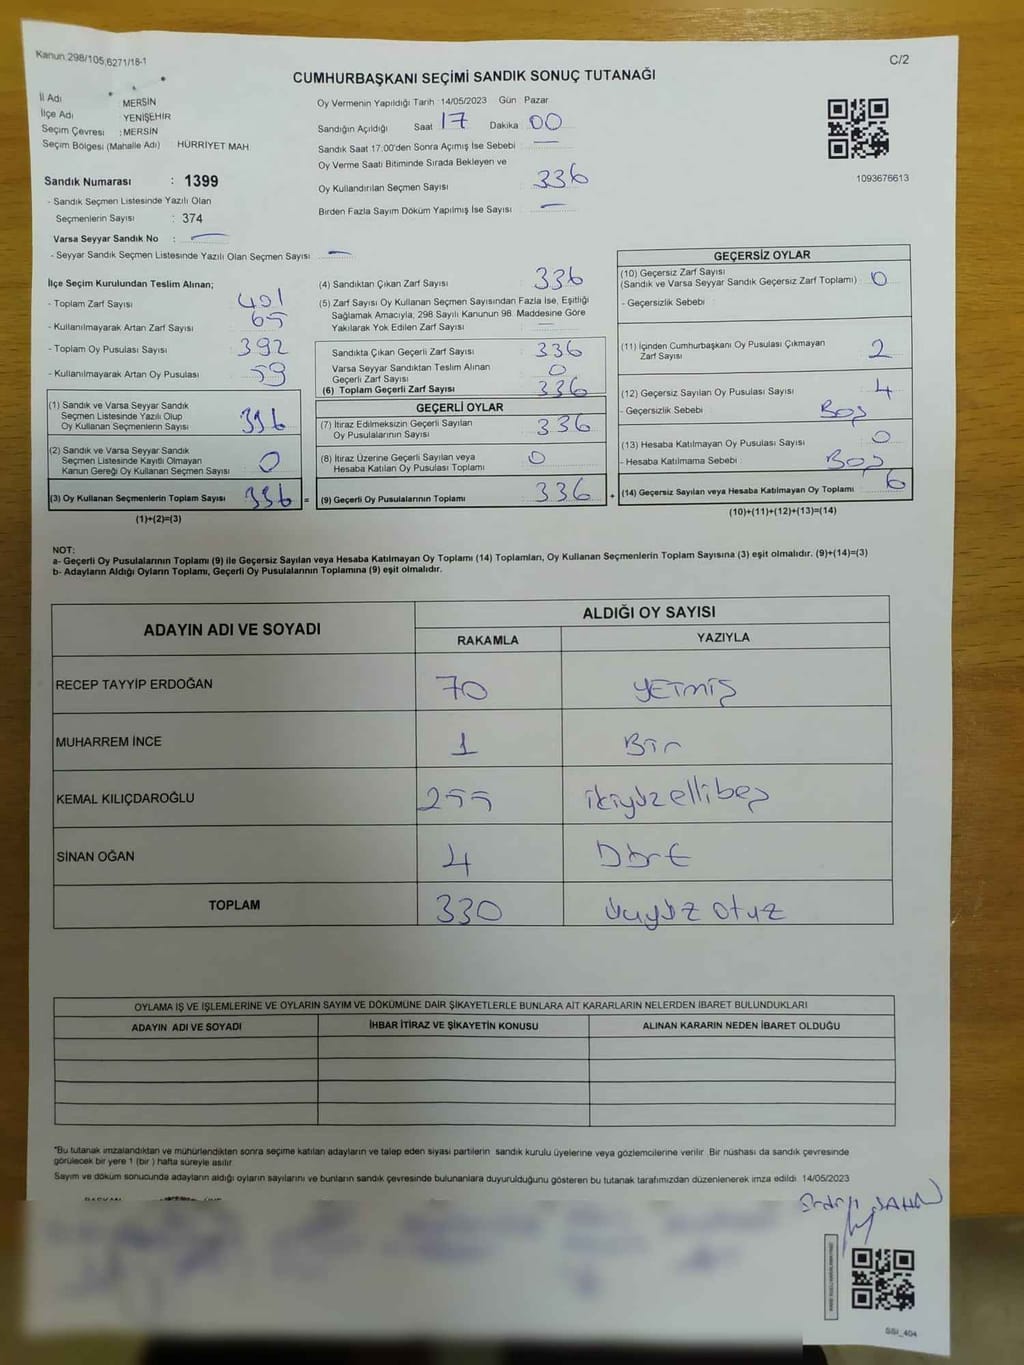 Kanun.298/105,6271/18-1
C/2
CUMHURBAŞKANI SEÇİMİ SANDIK SONUÇ TUTANAĞI
İl Adı MERSİN
İlçe Adı YENİŞEHİR
Seçim Çevresi : MERSİN
Seçim Bölgesi (Mahalle Adı) HÜRRİYET MAH.
Sandık Numarası : 1399
- Sandık Seçmen Listesinde Yazılı Olan
Seçmenlerin Sayısı : 374
Varsa Seyyar Sandık No : —
- Seyyar Sandık Seçmen Listesinde Yazılı Olan Seçmen Sayısı —
Oy Vermenin Yapıldığı Tarih 14/05/2023 Gün Pazar
Sandığın Açıldığı Saat 17 Dakika 00
Sandık Saat 17.00'den Sonra Açımış İse Sebebi —
Oy Verme Saati Bitiminde Sırada Bekleyen ve
Oy Kullandırılan Seçmen Sayısı 336
Birden Fazla Sayım Döküm Yapılmış İse Sayısı —
1093676613
İlçe Seçim Kurulundan Teslim Alınan;
- Toplam Zarf Sayısı 401
- Kullanılmayarak Artan Zarf Sayısı 65
- Toplam Oy Pusulası Sayısı 392
- Kullanılmayarak Artan Oy Pusulası 59
(1) Sandık ve Varsa Seyyar Sandık
Seçmen Listesinde Yazılı Olup
Oy Kullanan Seçmenlerin Sayısı 336
(2) Sandık ve Varsa Seyyar Sandık
Seçmen Listesinde Kayıtlı Olmayan
Kanun Gereği Oy Kullanan Seçmen Sayısı 0
(3) Oy Kullanan Seçmenlerin Toplam Sayısı 336 =
(1)+(2)=(3)
(4) Sandıktan Çıkan Zarf Sayısı 336
(5) Zarf Sayısı Oy Kullanan Seçmen Sayısından Fazla İse, Eşitliği
Sağlamak Amacıyla, 298 Sayılı Kanunun 98. Maddesine Göre
Yakılarak Yok Edilen Zarf Sayısı —
Sandıkta Çıkan Geçerli Zarf Sayısı 336
Varsa Seyyar Sandıktan Teslim Alınan
Geçerli Zarf Sayısı 0
(6) Toplam Geçerli Zarf Sayısı 336
GEÇERLİ OYLAR
(7) İtiraz Edilmeksizin Geçerli Sayılan
Oy Pusulalarının Sayısı 336
(8) İtiraz Üzerine Geçerli Sayılan veya
Hesaba Katılan Oy Pusulası Toplamı 0
(9) Geçerli Oy Pusulalarının Toplamı 336 +
GEÇERSİZ OYLAR
(10) Geçersiz Zarf Sayısı
(Sandık ve Varsa Seyyar Sandık Geçersiz Zarf Toplamı) 0
- Geçersizlik Sebebi
(11) İçinden Cumhurbaşkanı Oy Pusulası Çıkmayan
Zarf Sayısı 2
(12) Geçersiz Sayılan Oy Pusulası Sayısı 4
- Geçersizlik Sebebi Boş
(13) Hesaba Katılmayan Oy Pusulası Sayısı 0
- Hesaba Katılmama Sebebi Boş
(14) Geçersiz Sayılan veya Hesaba Katılmayan Oy Toplamı 6
(10)+(11)+(12)+(13)=(14)
NOT:
a- Geçerli Oy Pusulalarının Toplamı (9) ile Geçersiz Sayılan veya Hesaba Katılmayan Oy Toplamı (14) Toplamları, Oy Kullanan Seçmenlerin Toplam Sayısına (3) eşit olmalıdır. (9)+(14)=(3)
b- Adayların Aldığı Oyların Toplamı, Geçerli Oy Pusulalarının Toplamına (9) eşit olmalıdır.
ADAYIN ADI VE SOYADI ALDIĞI OY SAYISI
RAKAMLA YAZIYLA
RECEP TAYYİP ERDOĞAN 70 YETMİŞ
MUHARREM İNCE 1 Bir
KEMAL KILIÇDAROĞLU 255 ikiyüzellibeş
SİNAN OĞAN 4 Dört
TOPLAM 330 üçyüz otuz
OYLAMA İŞ VE İŞLEMLERİNE VE OYLARIN SAYIM VE DÖKÜMÜNE DAİR ŞİKAYETLERLE BUNLARA AİT KARARLARIN NELERDEN İBARET BULUNDUKLARI
ADAYIN ADI VE SOYADI İHBAR İTİRAZ VE ŞİKAYETİN KONUSU ALINAN KARARIN NEDEN İBARET OLDUĞU
*Bu tutanak imzalandıktan ve mühürlendikten sonra seçime katılan adayların ve talep eden siyasi partilerin sandık kurulu üyelerine veya gözlemcilerine verilir. Bir nüshası da sandık çevresinde
görülecek bir yere 1 (bir ) hafta süreyle asılır.
Sayım ve döküm sonucunda adayların aldığı oyların sayılarını ve bunların sandık çevresinde bulunanlara duyurulduğunu gösteren bu tutanak tarafımızdan düzenlenerek imza edildi. 14/05/2023
BAŞKAN
ŞAHİN
SSI_404